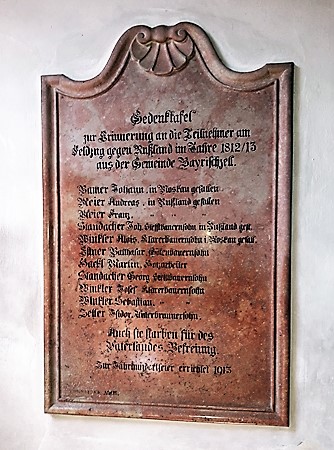 Gedenktafel
zur Erinnerung an die Teilnehmer am
Feldzug gegen Rußland im Jahre 1812/13
aus der Gemeinde Bayrischzell.
Johann, in Moskau gefallen
Meier Andreas, in Rußland gefallen
Meier Franz, " " "
Standacher Joh. in Rußland gest.
Winkler Alois, Klarerbauernsohn i. Moskau gefall.
Balthasar,
Gartl Martin, Holzarbeiter
Standacher Georg
Winkler Josef Klarerbauernsohn
Winkler Sebastian, " "
Isidor, Unterbrunnersohn.
Auch sie starben für des
Vaterlandes Befreiung.
Zur Jahrhundertfeier errichtet 1913